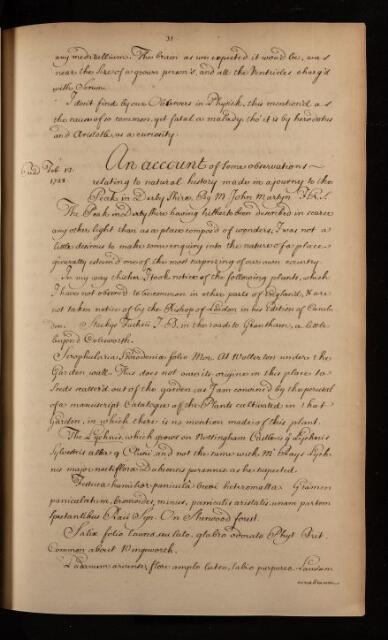 31
any meditullium. The brain as we expected it would be, was
near the Size of a grown person's, and all the Ventricles charg'd
with Serum.
I don't find by our Observers in Physick, this mention'd as
the cause of so common, yet fatal a malady, tho' it is by herodotus
and Aristotle as a curiosity.
Read Feb. 12
1728.
An account of some observations
relating to natural history made in a journey to the
Peak in Derby Shire, By Mr John Martyn F.R.S.
The Peak in Derbyshire having hitherto been described in scarce
any other light than as a place compos'd of wonders, I was not a
little desirous to make some enquiry into the nature of a place
generally esteem'd one of the most surprizing of our own country.
In my way thither I took notice of the following plants, which
I have not observ'd to be common in other parts of England, & are
not taken notice of by the Bishop of London in his Edition of Camb
den. Stachys Fuchsii J.B. in the road to Grantham, a little
beyond Colsworth.
Scrophularia Scorodoniae folio Mor. At Wollerton under the
Garden wall. This does not owe its origine in this place to
seeds scatter'd out of the garden, as I am convinced by the perusal
of a manuscript Catalogue of the Plants cultivated in that
Garden, in which there is no mention made of this plant.
The Lychnis, which grows on Nottingham Castle is ye Lychnis
Sylvestris alba 9 Clusii and not the same with Mr Rays Lych-
nis major noctiflora Dubrensis perennis as he suspected.
Festuca humilior panicula brevi heteromalla Gramen
paniculatum, bromoides, minus, paniculis aristatis unam partem
spectantibus Raii Syn. On Sherwood forest.
Salix folio laureo, seu lato, glabro odorato Phyt. Brit.
Common about Wingworth.
Ladanum arvense, flore amplo luteo, labio purpureo. Lamium